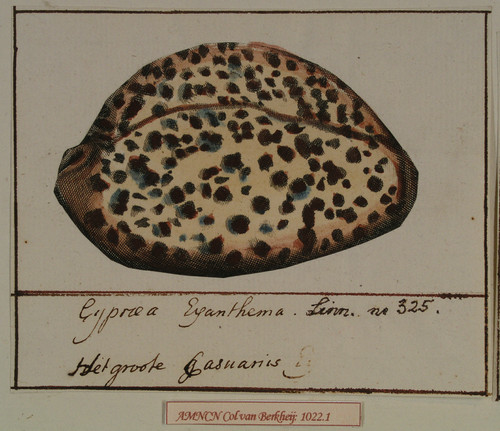 Cypræa Exanthema. Linn. no 325.
Het groote Casuariis Ey
AMNCN Col van Berkheij: 1022.1